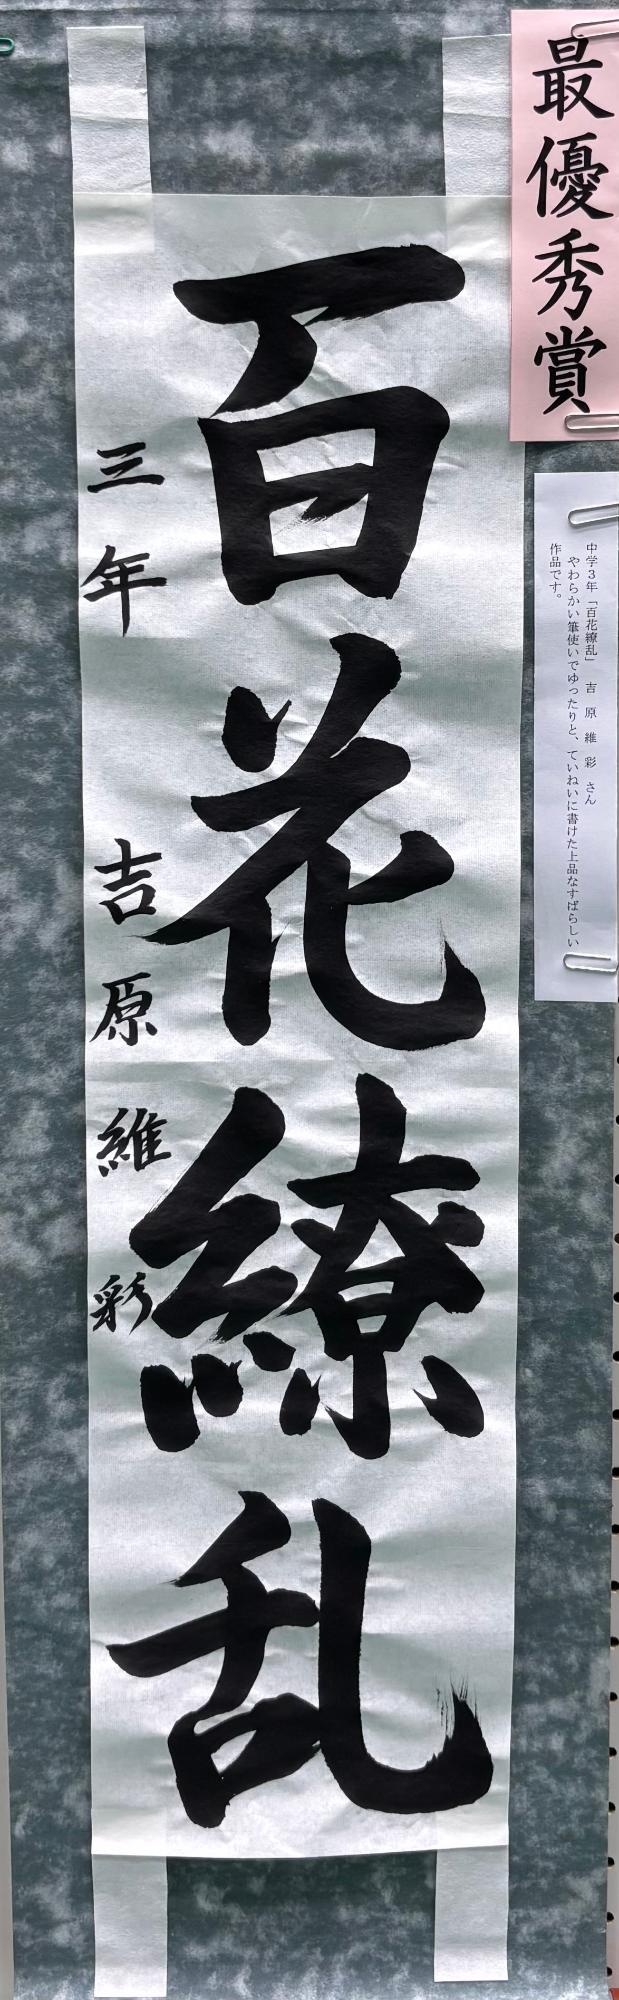 最優秀賞
中学3年「百花繚乱」 吉原維彩さん
やわらかい筆使いでゆったりと、ていねいに書けた上品なすばらしい
作品です。
百花繚乱
三年 吉原維彩